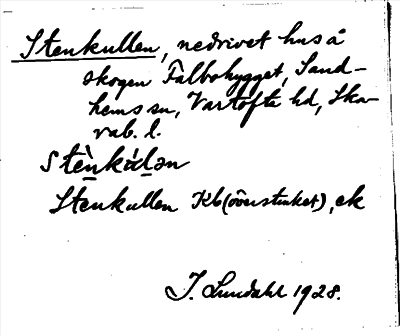 Stenkullen, nedrivet hus å
skogen Falbohygget, Sand-
hems sn, Vartofta hd, Ska-
rab. l.
Stenkullen Kb (överstruket), ek
J. Lundahl 1928.